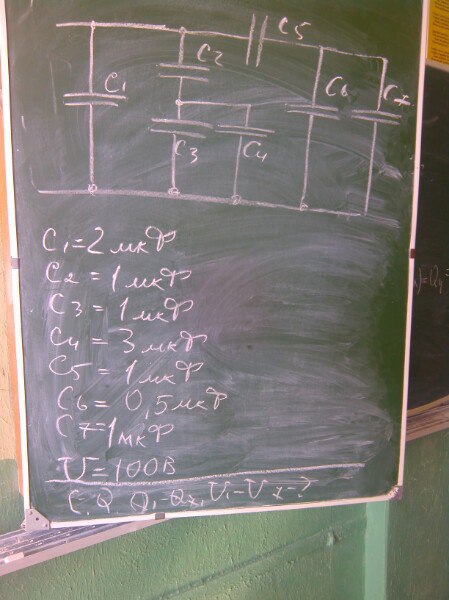 C5
C2
C1
C6
C7
C3
C4
C1=2мкФ
C2=1мкФ
C3=1мкФ
C4=3мкФ
C5=1мкФ
C6=0,5мкФ
C7=1мкФ
U=100В
C, Q, Q1-Q7, U1-U7-?